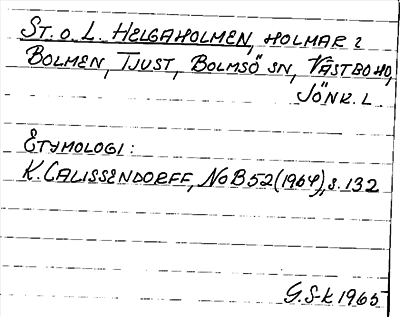 ST. O. L. HELGAHOLMEN, HOLMAR I
BOLMEN, TJUST, BOLMSÖ SN, VÄSTBO HD,
JÖNK. L
ETYMOLOGI:
K. CALISSENDORFF, NOB 52 (1964), S. 132
G. S-K 1965